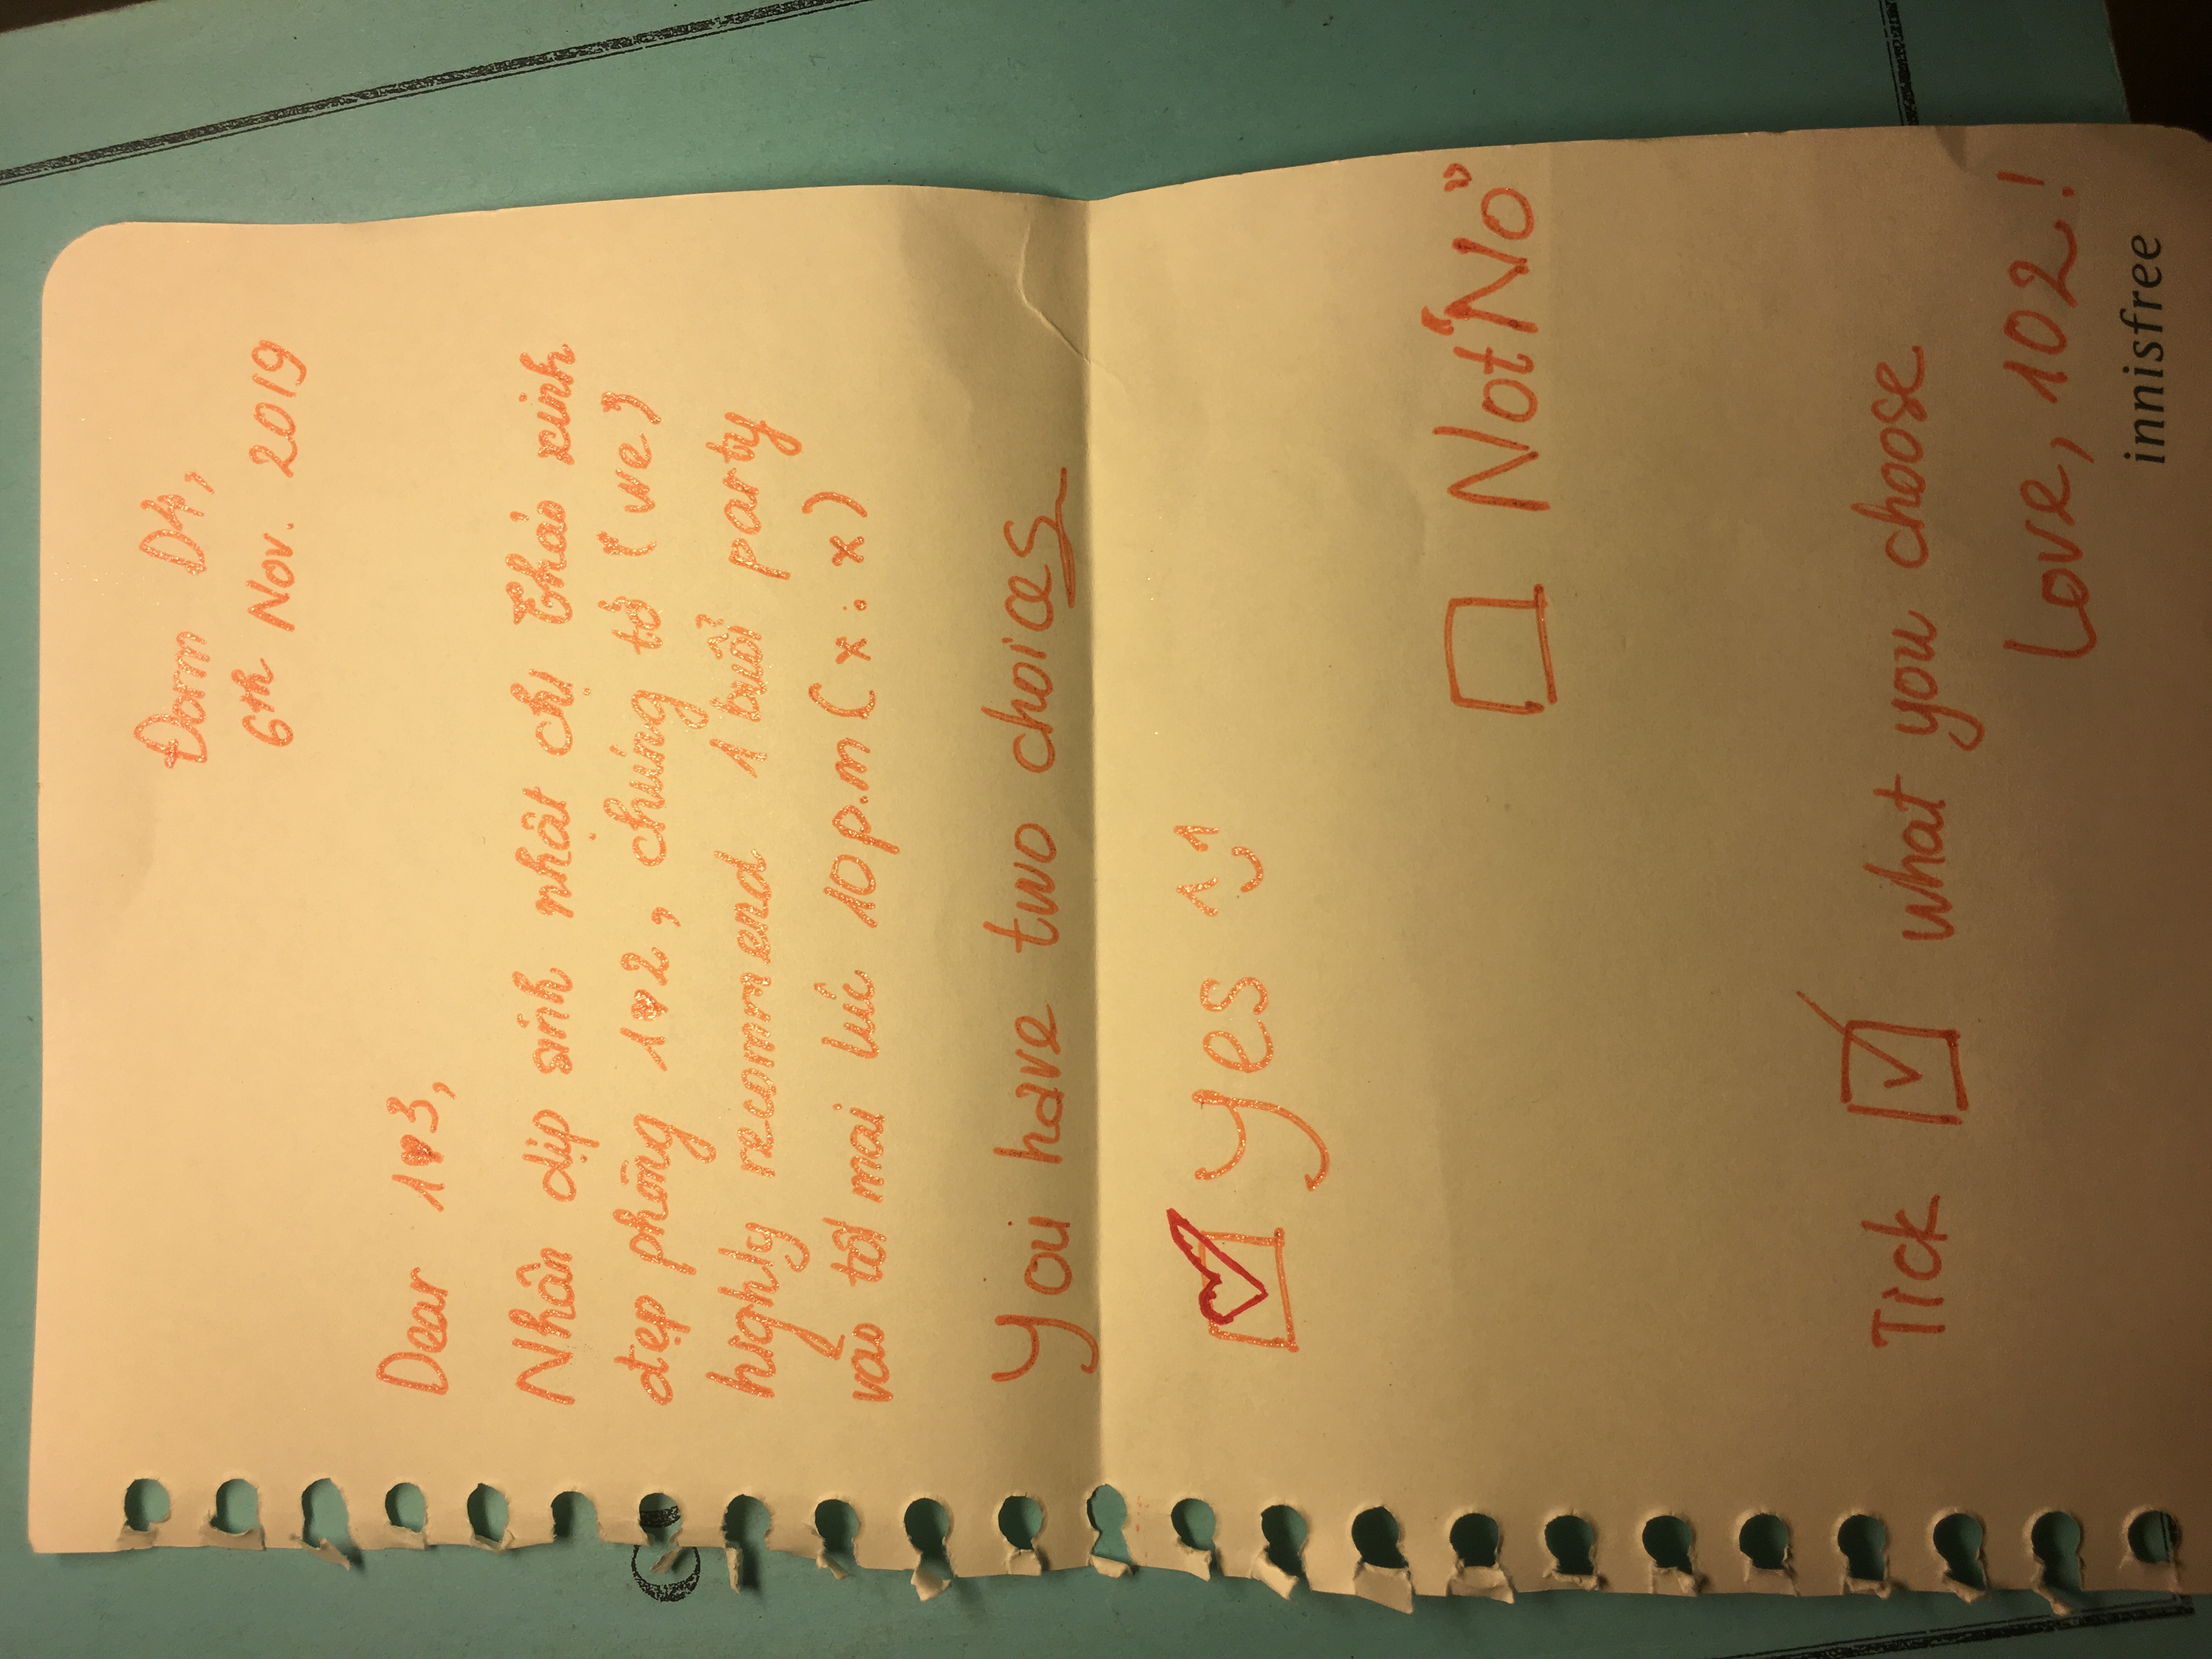 Đorm D4,
6th Nov. 2019
Dear 1♥3,
Nhân dịp sinh nhật chị Thảo xinh
đẹp phòng 1♥2, chúng tớ (we)
highly recommend 1 buổi party
vào tối mai lúc 10p.m (x:x)
You have two choices
☑ Yes ^‿^
☐ Not "No"
Tick ☑ what you choose
Love, 102!
innisfree